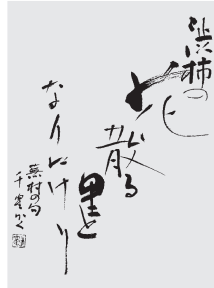 渋柿の
花
散る
里と
なりにけり
蕪村の句
千宵かく